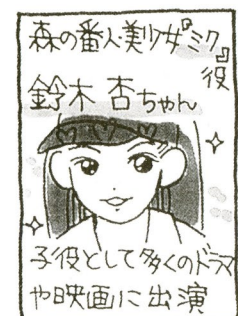 森の番人美少女『ミク』役
鈴木 杏ちゃん
子役として多くのドラマ
や映画に出演